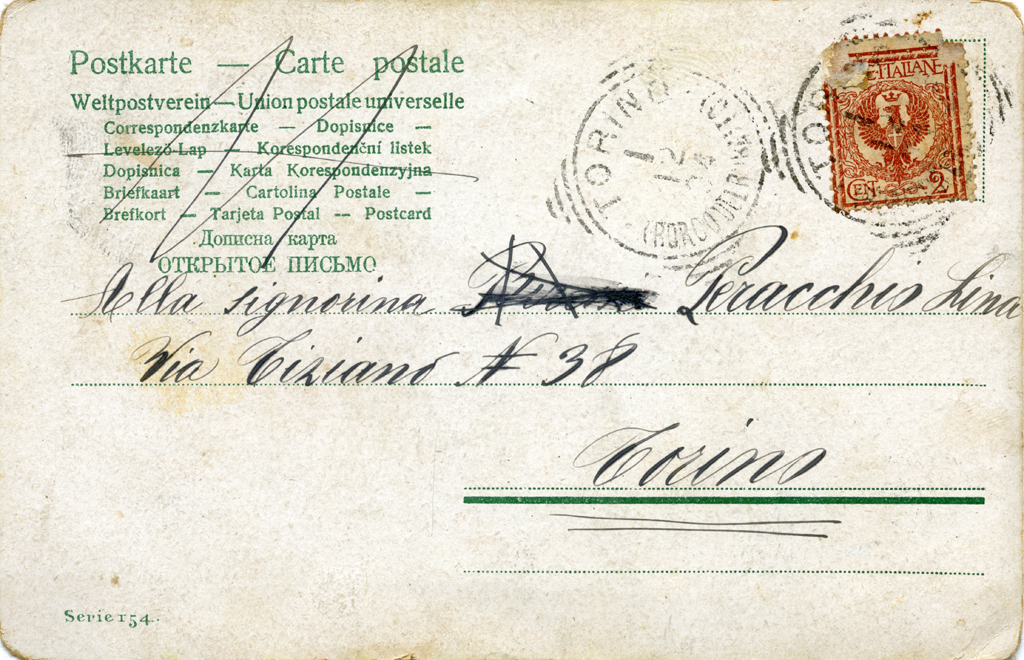 Postkarte — Carte postale
Weltpostverein — Union postale universelle
Correspondenzkarte — Dopisnice —
Levelező-Lap — Korespondenční listek
Dopisnica — Karta Korespondenzyjna
Briefkaart — Cartolina Postale —
Brefkort — Tarjeta Postal -- Postcard
Дописна карта
ОТКРЫТОЕ ПИСЬМО
TORINO
1 12
E ITALIANE
CEN. 2
TOR
Alla signorina Peracchio Lina
Via Tiziano N 38
Torino
Serie 154.